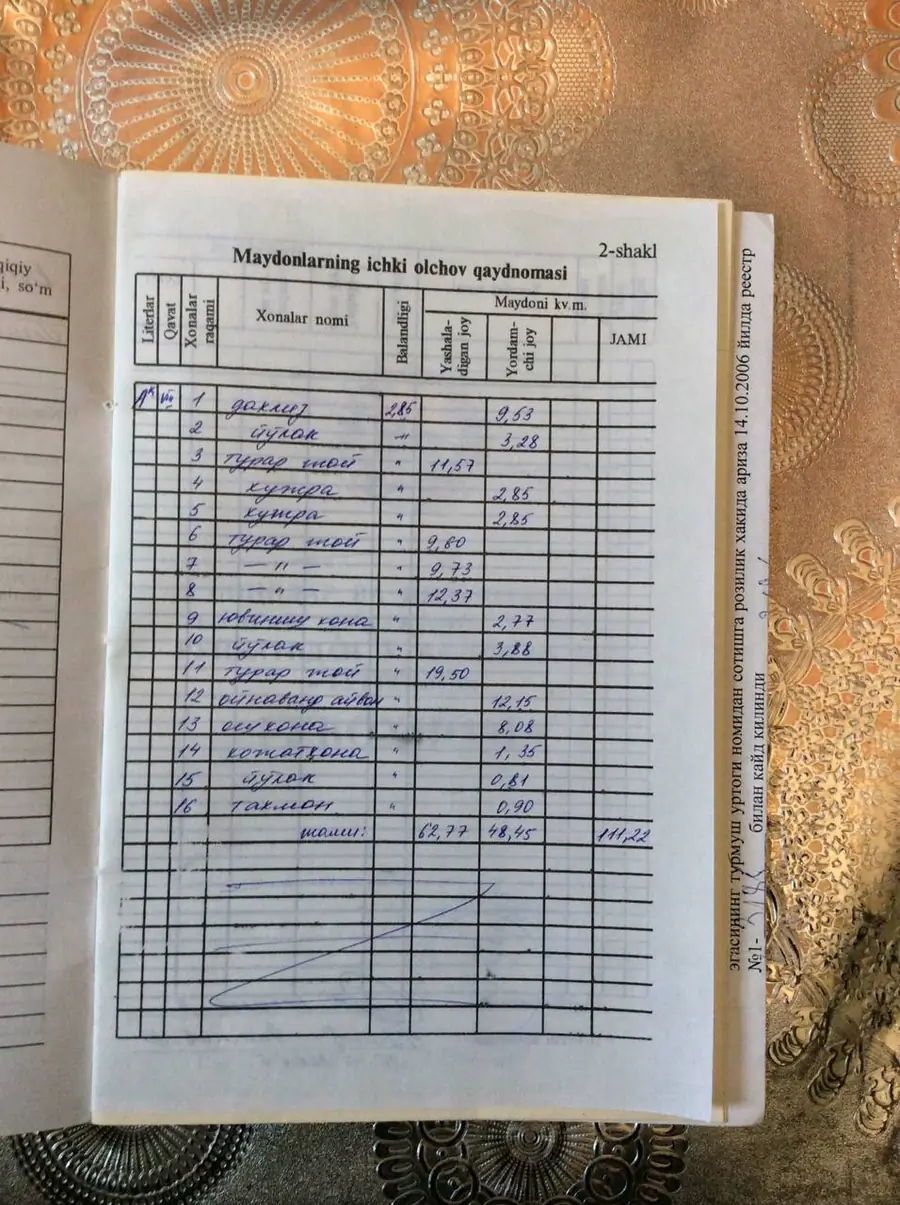 qiqiy
i, so‘m
2-shakl
Maydonlarning ichki olchov qaydnomasi
Literlar Qavat Xonalar raqami Xonalar nomi Balandligi Maydoni kv.m.
Yashala-digan joy Yordam-chi joy JAMI
1 дахлиз 2,85 9,53
2 йўлак -"- 3,28
3 турар жой " 11,57
4 хужра " 2,85
5 хужра " 2,85
6 турар жой " 9,80
7 — " — " 9,73
8 — " — " 12,37
9 ювиниш хона " 2,77
10 йўлак " 3,88
11 турар жой " 19,50
12 ойнаванд айвон " 12,15
13 ошхона " 8,08
14 хожатхона " 1,35
15 йўлак " 0,81
16 тахмон " 0,90
жами: 62,77 48,45 111,22
эгасининг турмуш уртоги номидан сотишга розилик хакида ариза 14.10.2006 йилда реестр
№1- билан кайд килинди